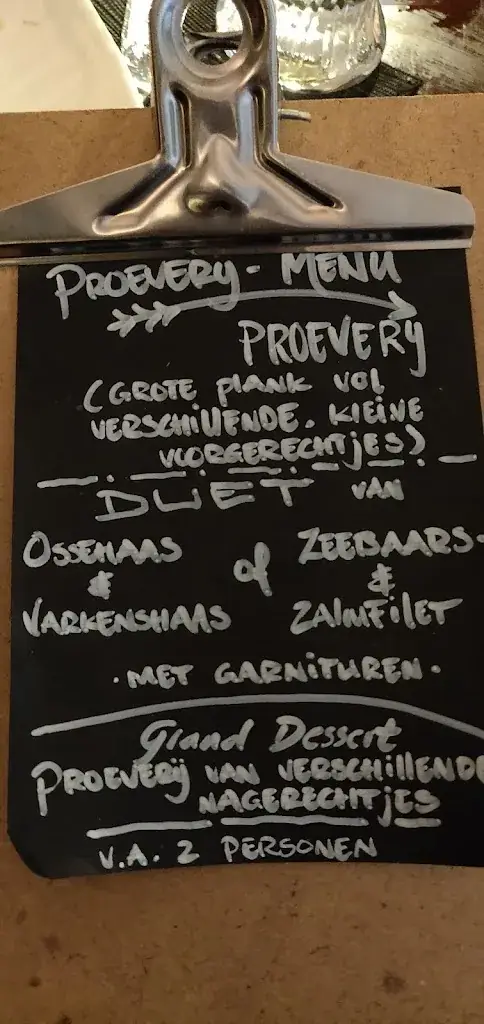 PROEVERY - MENU
PROEVERY
(GROTE PLANK VOL
VERSCHILLENDE. KLEINE
VOORGERECHTJES)
DUET VAN
OSSEHAAS of ZEEBAARS
& &
VARKENSHAAS ZALMFILET
·MET GARNITUREN·
Grand Dessert
PROEVERIJ VAN VERSCHILLENDE
NAGERECHTJES
V.A. 2 PERSONEN